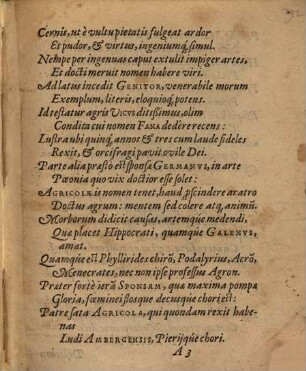 Cernis, ut è vultu pietatis fulgeat ardor
Et pudor, & virtus, ingeniumq́; simul.
Nempe per ingenuas caput extulit impiger artes,
Et docti meruit nomen habere viri.
Ad latus incedit GENITOR, venerabile morum
Exemplum, literis, eloquioq́; potens.
Id testatur agris VICVS ditißimus, olim
Condita cui nomen FANA dedêre recens:
Lustra ubi quinq́; annos & tres cum laude fideles
Rexit, & orcifragi pavit ovile Dei.
Parte alia præstò est sponsa GERMANVS, in arte
Pæonia quo vix doctior esse solet:
AGRICOLÆ is nomen tenet, haud ꝓscindere aratro
Doctus agrum: mentem sed colere atq; animũ.
Morborum didicit causas, artemque medendi,
Quæ placet Hippocrati, quamque GALENVS,
amat.
Quamque est Phyllirides chirõ, Podalyrius, Acrõ,
Menecrates, nec non ipse professus Agron.
Præter fortè ierã SPONSAM, qua maxima pompæ
Gloria, fœmineíosque decusque chori est:
Patre sata AGRICOLA, qui quondam rexit habe-
nas
Ludi AMBERGENSIS, Pierijque chori.
A 3